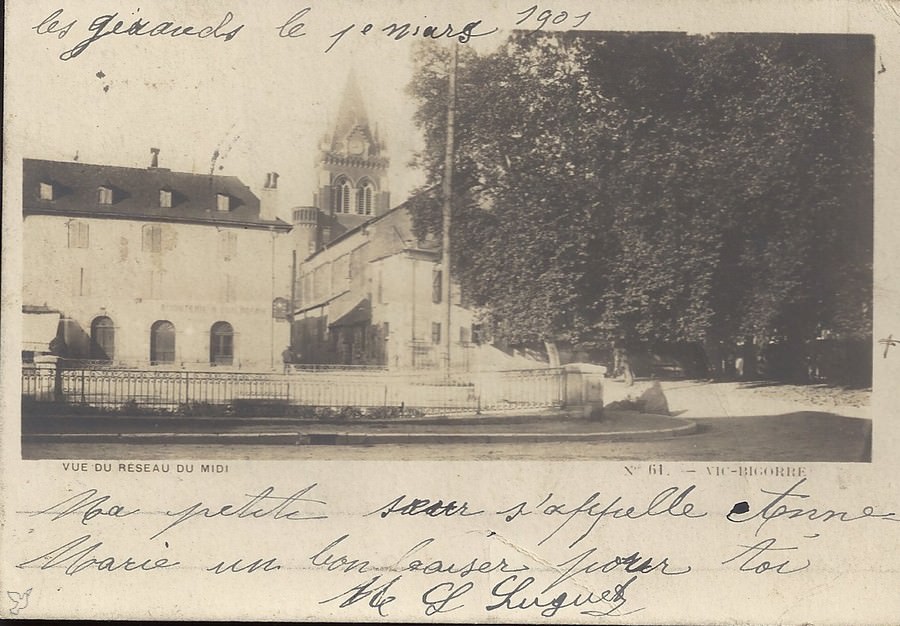 les Gérauds le 1e mars 1901
VUE DU RÉSEAU DU MIDI
No 61. — VIC-BIGORRE
Ma petite sœur s'appelle Anne-
Marie un bon baiser pour toi